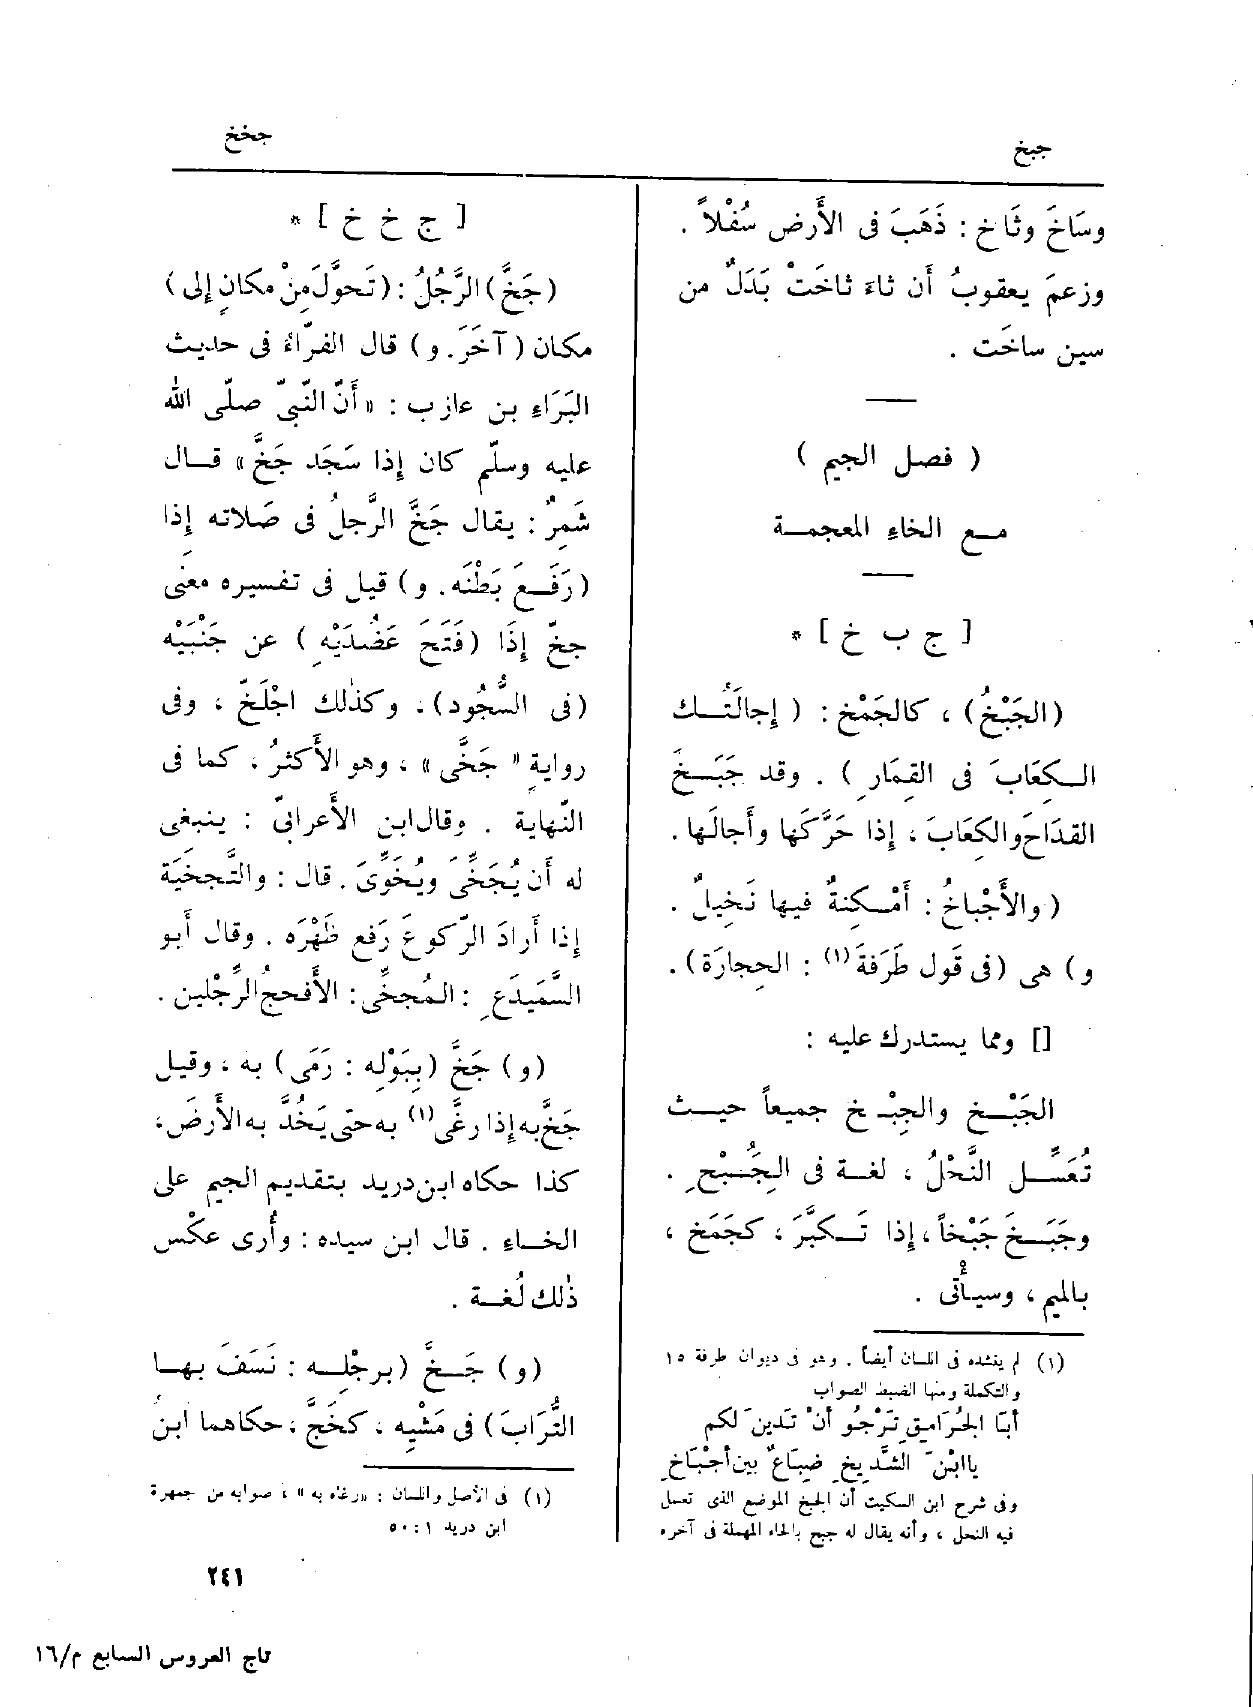 جبخ
جخخ
وسَاخَ وثَاخ : ذَهَبَ فى الأَرض سُفْلاً .
وزعمَ يعقوبُ أَن ثاءَ ثاخَتْ بَدَلٌ من
سين ساخَت .
( فصل الجيم )
مـع الخاءِ المعجمـة
[ ج ب خ ] *
(الجَبْخُ) ، كالجَمْخ : ( إِجالَتُـك
الـكِعَابَ فى القِمَارِ ) . وقد جَبَـخَ
القِدَاحَ والكِعَابَ ، إِذا حَرَّكَها وأَجالَها .
( والأَجْباخُ : أَمْـكِنةٌ فيها نَخِيلٌ .
و) هى (فى قول طَرَفَةَ (١) : الحِجارَة) .
[] ومما يستدرك عليه :
الجَبْـخ والجِبْـخ جميعاً حيـث
تُعَسِّـل النَّحْلُ ، لغـة فى الجُِـبْحِ .
وجَبَـخَ جَبْخاً ، إِذا تَـكبَّرَ ، كجَمَخَ ،
بالميم ، وسيأْتى .
(١) لم ينشده فى اللسان أيضاً . وهو فى ديوان طرفة ١٥
والتكملة ومنها الضبط الصواب
أبَا الجَرَامِقِ تَرْجُو أنْ تَدينَ لكم
ياابْنَ الشَّدِيخِ ضِبَاعٌ بين أجْبَاخِ
وفى شرح ابن السكيت أن الجبخ الموضع الذى تعسل
فيه النحل ، وأنه يقال له جبح بالحاء المهملة فى آخره
[ ج خ خ ] *
(جَخَّ) الرَّجُلُ : (تَحوَّلَ مِنْ مكانٍ إِلى )
مكان ( آخَرَ . و ) قال الفرّاءُ فى حديث
البَرَاءِ بن عازب : « أَنّ النَّبىّ صلَّى الله
عليه وسلّم كان إِذا سَجَد جَخَّ » قـال
شَمِرٌ : يقال جَخَّ الرَّجلُ فى صَلاتِه إِذا
(رَفَـعَ بَطْنَه . و) قيل فى تفسيره معنى
جخّ إِذَا (فَتَحَ عَضُدَيْهِ ) عن جَنْبَيْه
(فى السُّجُود) . وكذٰلك اجْلَخَّ ، وفى
روايةٍ « جَخَّى » ، وهو الأَكثرُ ، كما فى
النّهاية . وقال ابن الأَعرابىّ : ينبغى
له أَن يُجَخِّىَ ويُخَوِّىَ . قال : والتَّجخيَة
إِذا أَرادَ الرّكوعَ رَفع ظَهْرَه . وقال أَبو
السَّمَيدَعِ : المُجخِّى : الأَفحجُ الرِّجْلين .
(و) جَخَّ (بِبَوْلِه : رَمَى) به ، وقيل
جَخَّ به إِذا رغَّى (١) به حتى يَخُدَّ به الأَرضَ ،
كذا حكاه ابن دريد بتقديم الجيم على
الخـاءِ . قال ابن سيده : وأُرى عكْس
ذٰلك لُغـة .
(و) جَـخَّ (برجْلِـه : نَسَفَ بهـا
التُّرَابَ) فى مَشْيِه ، كخَجَّ ، حكاهما ابنُ
(١) فى الأصل واللسان : «رغاه به» ، صوابه من جمهرة
ابن دريد ١ : ٥٠
٢٤١
تاج العروس السابع م/١٦